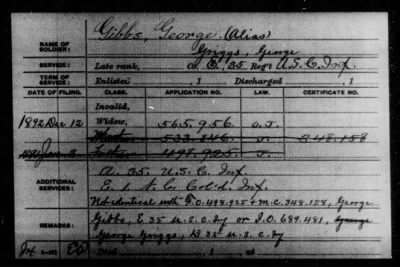 Gibbs, George, (Alias)
NAME OF SOLDIER: Griggs, George
SERVICE: Late rank, E, 35 Reg't U.S.C. Inf.
TERM OF SERVICE: Enlisted , 1 Discharged , 1
DATE OF FILING. CLASS. APPLICATION NO. LAW. CERTIFICATE NO.
Invalid,
1892 Dec 12 Widow, 565.956 O.J.
533.846 348.158
498.925
ADDITIONAL SERVICES: A. 35. U.S.C. Inf.
E. 1. N.C. Col'd. Inf.
Not identical with F.O. 498.925 + M.C. 348.158, George
REMARKS: Gibbs, E 35 U.S.C. Iy or I.O. 689.481, George
George Griggs, D 35 U.S.C. Iy
Died , 1 , at